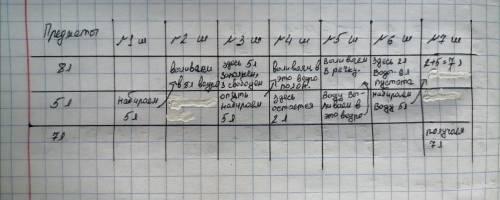 Предметы
№1 ш №2 ш №3 ш №4 ш №5 ш №6 ш №7 ш
8л
выливаем
в 8л ведро
здесь 5л
заполнен,
3 свободен
выливаем в
это ведро
выливаем
в речку.
здесь 2л
вода
пустота
2+5=7л
5л
набираем
5л
опять
набираем
5л
здесь
остается
2л
воду вы-
ливаем в
это ведро
набираем
воду 5л
7л
получаем
7л